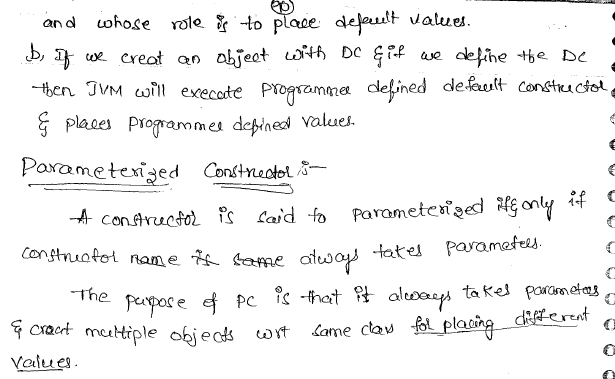 90
and whose role is to place default values.
b, If we creat an object with DC & if we define the DC
then JVM will execute Programmer defined default constructor
& places Programmer defined values.
Parameterized Constructor :-
A constructor is said to parameterized if & only if
constructor name is same always takes parameters.
The purpose of PC is that it always takes parameters
& creat multiple objects wrt same class for placing different
values.